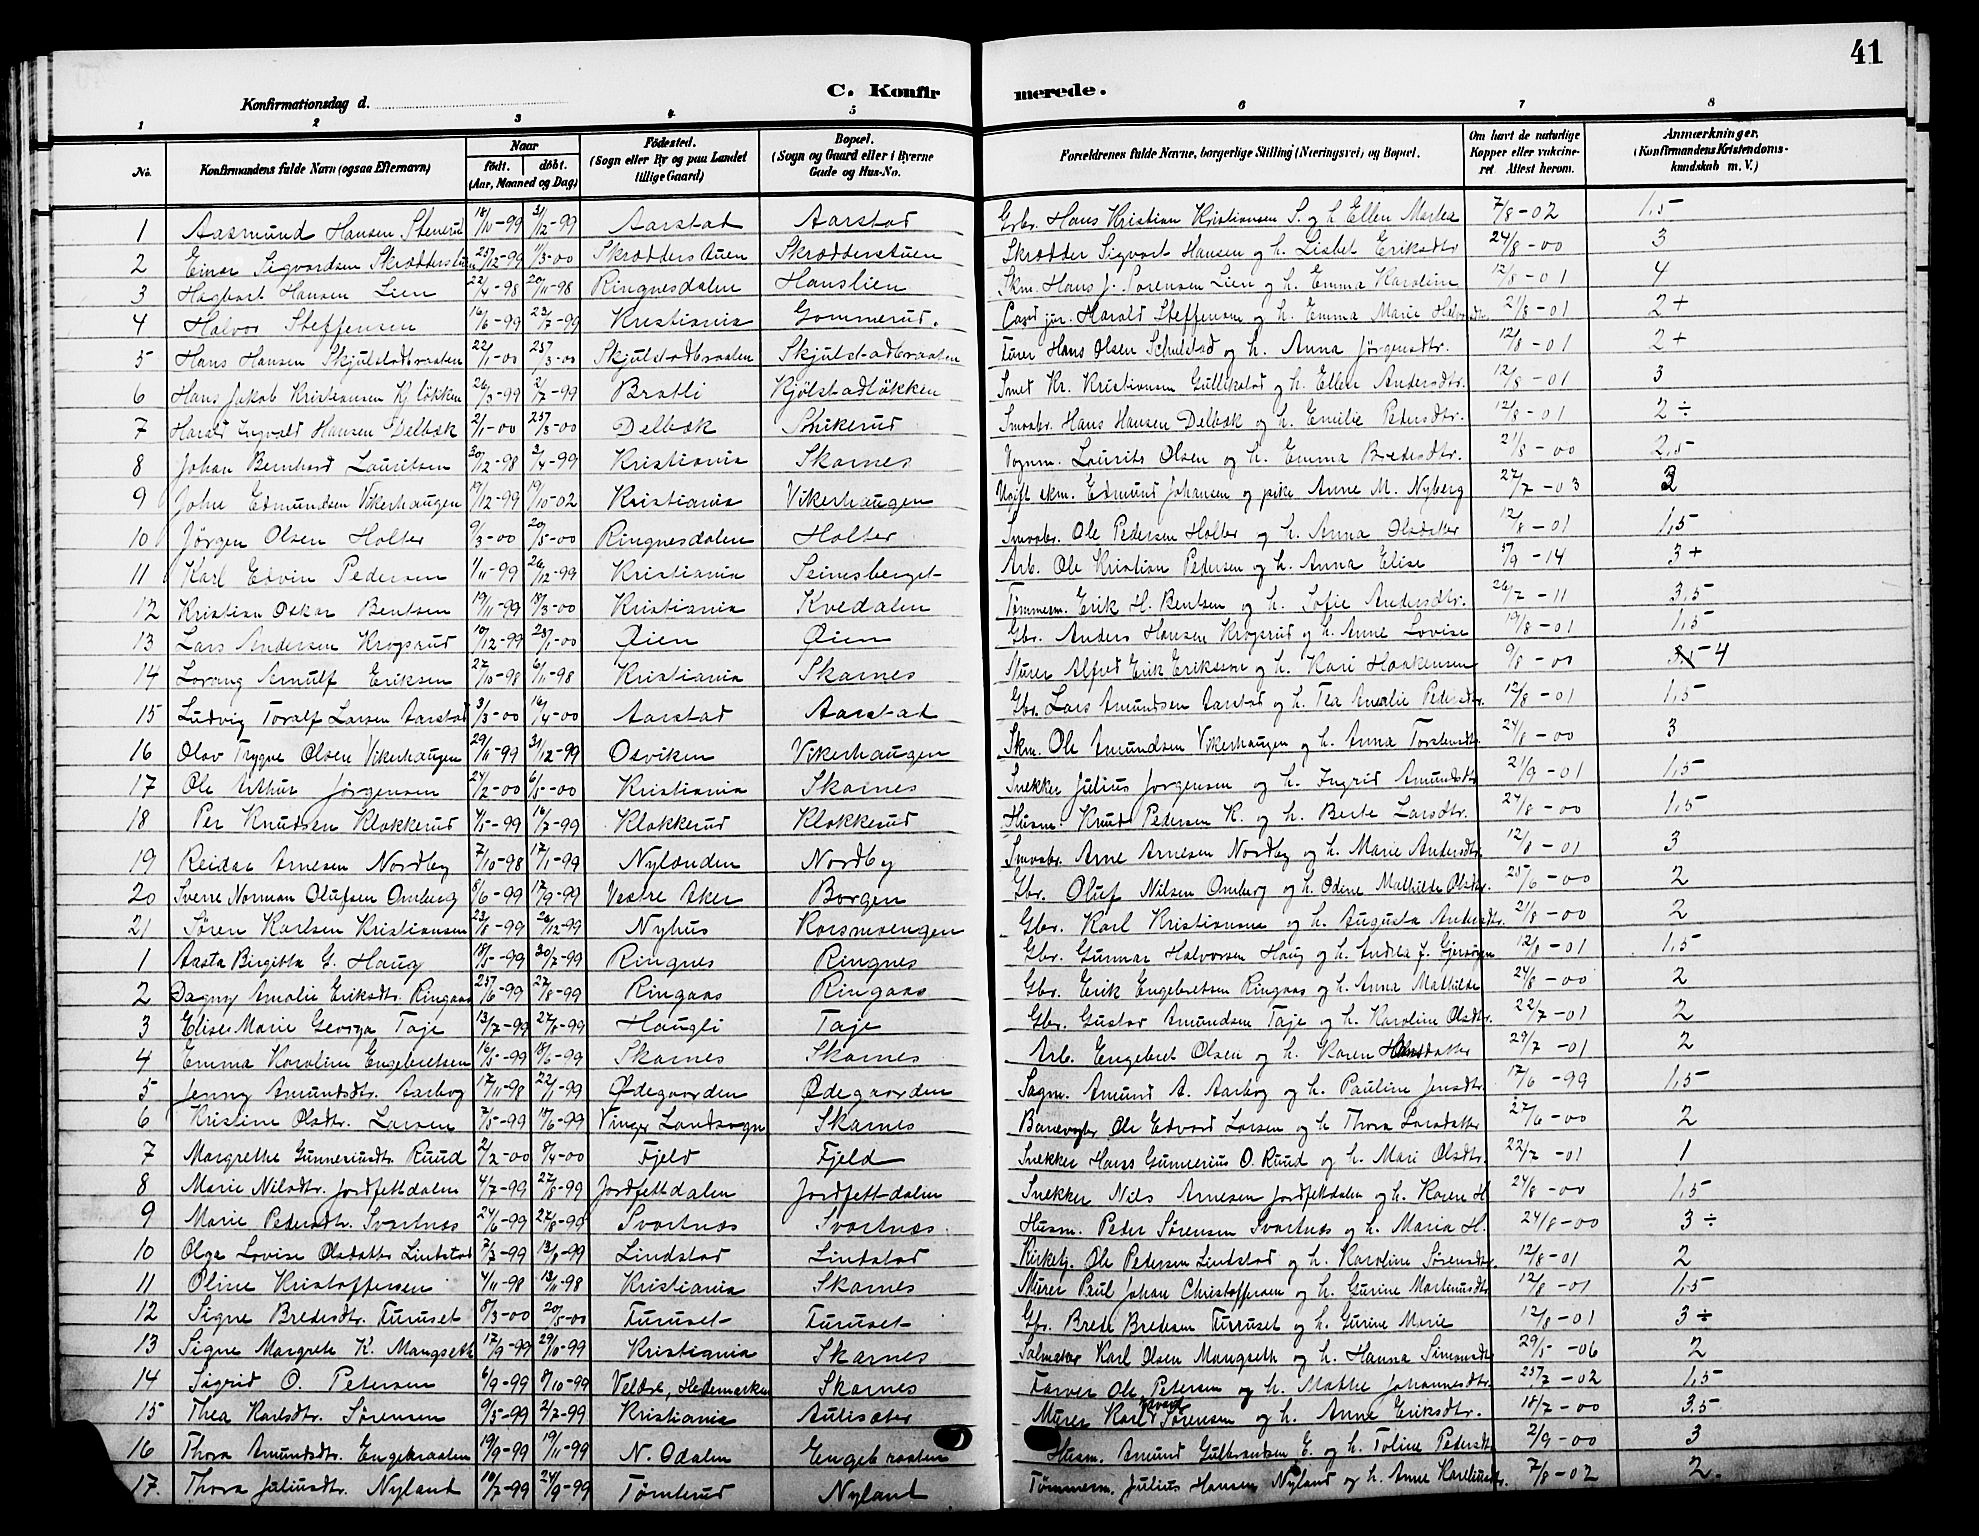 41
C. Konfirmerede.
Konfirmationsdag d.
1 2 3 4 5 6 7 8
No. Konfirmandens fulde Navn (ogsaa Efternavn) Naar født. døbt. (Aar, Maaned og Dag) Fødested. (Sogn eller By og paa Landet tillige Gaard) Bopæl. (Sogn og Gaard eller i Byerne Gade og Hus-No. Forældrenes fulde Navne, borgerlige Stilling (Næringsvei) og Bopæl. Om havt de naturlige Kopper eller vakcineret Attest herom. Anmærkninger. (Konfirmandens Kristendomskundskab m. V.)
1 Aasmund Hansen Stenerud 18/10-99 31/12-99 Aarstad Aarstad Gbr. Hans Kristian Kristiansen S. og h. Ellen Martea 7/8-02 1,5
2 Einar Sigvardsen Skrædderstuen 25/12-99 11/3-00 Skrædderstuen Skrædderstuen Skrædder Sigvart Hansen og h. Lisbet Eriksdtr 24/8-00 3
3 Hagbart Hansen Lien 22/4-98 20/11-98 Ringnesdalen Hanslien Skm. Hans J. Sørensen Lien og h. Emma Karoline 12/8-01 4
4 Halvor Steffensen 16/6-99 23/7-99 Kristiania Gommerud. Harald Steffensen og h. Emma Marie 21/8-01 2+
5 Hans Hansen Skjulstadbraaten 22/1-00 25/3-00 Skjulstadbraaten Skjulstadbraaten Hans Olsen og h. Anna Jørgensdtr. 12/8-01 2+
6 Hans Jakob Kristiansen Kj.løkken 26/3-99 2/7-99 Bratli Kjølstadløkken Smed Kr. Kristiansen Gullikstad og h. Ellen Andersdtr. 12/8-01 3
7 Harald Ingvald Hansen Delbæk 2/1-00 25/3-00 Delbæk Smaabr. Hans Hansen Delbæk og h. Emilie Pedersdtr. 12/8-01 2÷
8 Johan Bernhard Lauritsen 30/12-98 2/4-99 Kristiania Skarnes Vognm. Laurits Olsen og h. Emma Bredesdtr. 21/8-00 2,5
9 John Edmundsen Vikerhaugen 17/12-99 19/10-02 Kristiania Vikerhaugen Ugift skm. Edmund Johansen og pike Anne M. Nyberg 27/7-03 3
10 Jørgen Olsen Holter 9/3-00 20/5-00 Ringnesdalen Holter Smaabr. Ole Pedersen Holter og h. Anna Olsdatter 12/8-01 1,5
11 Karl Edvin Pedersen 1/11-99 26/12-99 Kristiania Seinesberget Arb. Ole Kristian Pedersen og h. Anna Elise 5/9-14 3+
12 Kristian Oskar Bentsen 19/11-99 18/3-00 Kristiania Kvedalen Tømmerm. Erik H. Bentsen og h. Sofie Andersdtr. 26/7-11 3,5
13 Lars Andersen Krogsrud 10/12-99 28/1-00 Øien Øien Gbr. Anders Hansen Krogsrud og h. Anne Lovise 19/8-01 1,5
14 Lorang Arnulf Eriksen 27/10-98 6/11-98 Kristiania Skarnes Murer Alfred Erik Eriksen og h. Kari Haakensen 9/8-00 4
15 Ludvig Toralf Larsen Aarstad 3/3-00 16/4-00 Aarstad Aarstad Gbr. Lars Amundsen Aarstad og h. Tea Amalie Pedersdtr. 12/8-01 1,5
16 Olav Trygve Olsen Vikerhaugen 29/11-99 31/12-99 Osviken Vikerhaugen Skm. Ole Amundsen Vikerhaugen og h. Anna Torstensdtr 24/8-00 3
17 Ole Arthur Jørgensen 24/2-00 6/5-00 Kristiania Skarnes Snekker Julius Jørgensen og h. Ingrid Amundsdtr 21/9-01 1,5
18 Per Knudsen Klokkerud 4/5-99 16/7-99 Klokkerud Klokkerud Husm. Knud Pedersen K. og h. Berte Larsdtr. 24/8-00 1,5
19 Reidar Arnesen Nordby 7/10-98 17/1-99 Nylænden Nordby Smaabr. Arne Arnesen Nordby og h. Marie Andersdtr. 12/8-01 3
20 Sverre Norman Olufsen Omberg 8/6-99 17/9-99 Vestre Aker Borgen Gbr. Oluf Nilsen Omberg og h. Odine Mathilde Olsdtr. 25/6-00 2
21 Søren Karlsen Kristiansen 23/8-99 26/12-99 Nyhus Korsmoengen Gbr. Karl Kristiansen og h. Augusta Andersdtr. 21/8-00 2
1 Aasta Birgitta G. Haug 18/5-99 30/7-99 Ringnes Ringnes Gbr. Gunnar Halvorsen Haug og h. 12/8-01 1,5
2 Dagny Amalie Eriksdtr. Ringaas 25/6-99 27/8-99 Ringaas Ringaas Gbr. Erik Engebretsen Ringaas og h. Anna Mathilde 24/8-00 2
3 Elise Marie Georga Taje 13/7-99 27/8-99 Haugli Taje Gbr. Gustav Amundsen Taje og h. Karoline Olsdtr. 22/7-01 2
4 Emma Karoline Engebretsen 16/5-99 18/6-99 Skarnes Skarnes Arb. Engebret Olsen og h. Karen Hansdatter 29/7-01 2
5 Jenny Amundsdtr. Aarbog 17/11-98 22/1-99 Ødegaarden Ødegaarden Sagm. Amund A. Aarbog og h. Pauline Jensdtr. 17/6-99 1,5
6 Kristine Olsdtr. Larsen 7/5-99 18/6-99 Vinger Landsogn Skarnes Banevogter Ole Edvard Larsen og h Thora Larsdatter 27/6-00 2
7 Margrethe Gunneriusdtr. Ruud 2/2-00 8/4-00 Fjeld Fjeld Snekker Hans Gunnerius O. Ruud og h. Mari Olsdtr. 22/7-01 1
8 Marie Nilsdtr. Jordfettdalen 4/7-99 27/8-99 Jordfettdalen Jordfettdalen Snekker Nils Arnesen Jordfettdalen og h. Karen H 24/8-00 1,5
9 Marie Pedersdtr. Svartnæs 24/6-99 27/8-99 Svartnæs Svartnæs. Husm. Peder Sørensen Svartnæs og h. Maria H. 24/8-00 3÷
10 Olga Lovise Olsdatter Lindstad 7/3-99 13/8-99 Lindstad Lindstad Kirketj. Ole Pedersen Lindstad og h. Karoline Sørensdtr. 12/8-01 2
11 Oline Kristoffersen 4/11-98 13/11-98 Kristiania Skarnes Murer Paul Johan Christoffersen og h. Gurine Martinusdtr 12/8-01 1,5
12 Signe Bredesdtr. Furuset 8/3-00 20/5-00 Furuset Furuset Gbr. Brede Bredesen Furuset og h. Gurine Marie 12/8-01 3÷
13 Signe Margrete K. Mangseth 17/9-99 29/10-99 Kristiania Skarnes Karl Olsen Mangseth og h. Hanna Simonsdtr 29/5-06 2
14 Sigrid O. Petersen 6/9-99 8/10-99 Veldre, Hedemarken Skarnes Farver Ole Petersen og h. Mathe Johannesdtr. 25/7-02 1,5
15 Thea Karlsdtr. Sørensen 9/5-99 2/7-99 Kristiania Aulisæter Murer Karl Edvard Sørensen og h. Anne Eriksdtr. 18/7-00 3.5
16 Thora Amundsdtr. Engebraaten 19/9-99 19/11-99 N. Odalen Engebraaten Husm. Amund Gulbrandsen E. og h. Toline Pedersdtr 2/9-00 3
17. Thora Juliusdtr. Nyland 10/7-99 24/9-99 Tømterud Nyland Tømmerm. Julius Hansen Nyland og h. Anne Karelius dtr. 7/8-02 2.